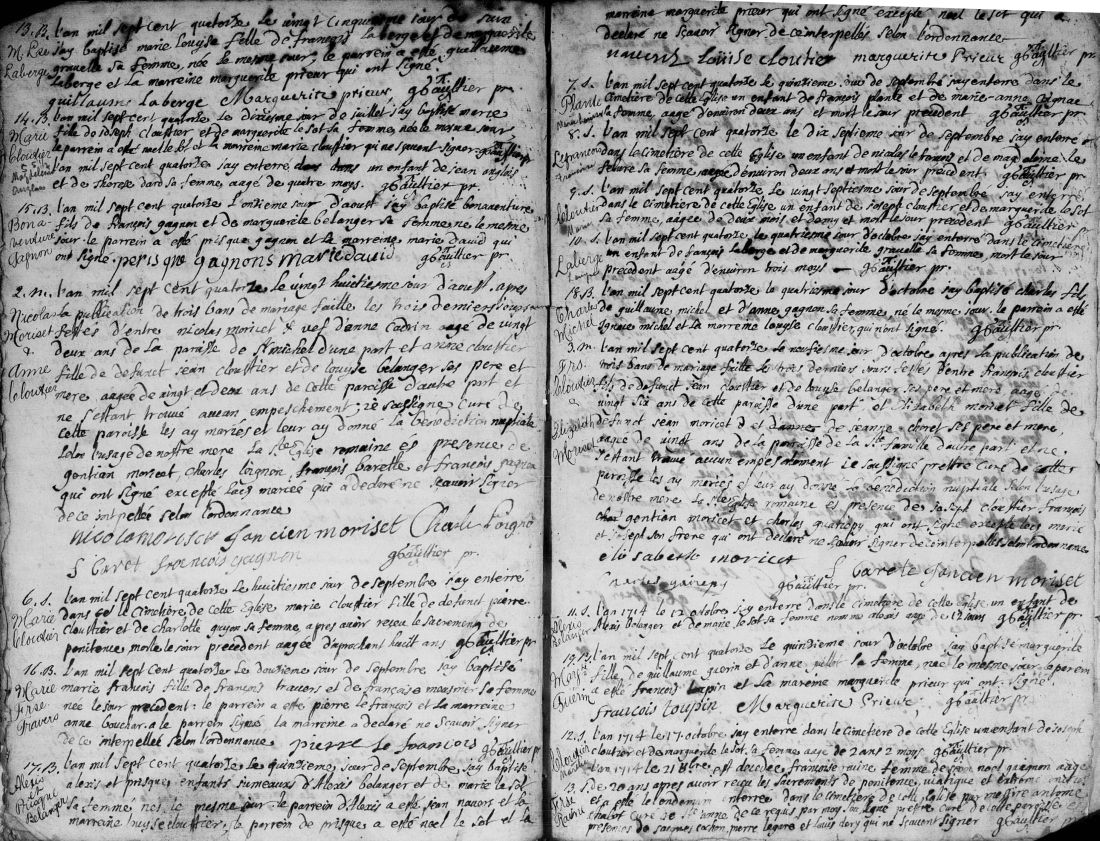 13. B. l'an mil sept cent quatorze le vingt cinquiesme jour de
M. Lse jay baptisé marie louyse fille de françois laberge et de marguerite
Laberge gravelle sa femme, née le mesme jour, le parrein a esté guillaume
laberge et la marreine marguerite prieur qui ont signé.
guillaume Laberge Marguerite prieur gGaultier pr
14. B. l'an mil sept cent quatorze le dixiesme jour de juillet jay baptisé marie
Marie fille de joseph clouttier et de marguerite le sot sa femme née le mesme jour
Cloutier le parrein a esté noel le sot et la marreine marie clouttier qui ne sçavent signer gGaultier
5. S. l'an mil sept cent quatorze jay enterré dans un enfant de jean anglois
anglois et de therese dard sa femme, aagé de quatre moys. gGaultier pr
15. B. l'an mil sept cent quatorze l'onziesme jour d'aoust jay baptisé bonaventure
Bona- fils de françois gagnon et de marguerite belanger sa femme né le mesme
venture jour. le parrein a esté prisque gagnon et la marreine marie david qui
Gagnon ont signé. perisque gagnons marie david gGaultier pr
2. m. l'an mil sept cent quatorze le vingt huitiesme jour d'aoust, apres
Nicolas la publication de trois bans de mariage faitte les trois derniers jours
Morisset festes d'entre nicolas moricet vef d'enne cadrin aagé de vingt
& deux ans de la paroisse de st michel d'une part et anne clouttier
Anne fille de defunct jean clouttier et de louyse belanger ses pere et
Cloutier mere aagée de vingt et deux ans de cette paroisse d'autre part et
ne s'estant trouvé aucun empeschement; je soussigné curé de
cette paroisse les ay mariés et leur ay donné la benediction nuptiale
selon l'usage de nostre mere la Ste Eglise romaine és presence de
gentian moricet, charles loignon, françois barette et françois gagnon
qui ont signé excepté la mariée qui a declaré ne sçavoir signer
de ce intpellée selon l'ordonnance
nicola moriset Jancien moriset Charle Loigno
f Baret françois gagnon gGaultier pr.
6. S. l'an mil sept cent quatorze le huitiesme jour de septembre jay enterré
Marie dans le Cimetiere de cette Eglise marie clouttier fille de defunct pierre
Cloutier clouttier et de charlotte guyon sa femme, apres avoir receu le sacrement de
penitence morte le jour precedent aagée d'aprochant huit ans gGaultier pr
16. B. l'an mil sept cent quatorze le douziesme jour de septembre jay baptisé
Marie marie françois fille de françois travers et de françoise mesmier sa femme
Frse née le jour precedent: le parrein a esté pierre le françois et la marreine
Travers anne bouchar. a le parrein signé la marreine a declaré ne sçavoir signer
de ce interpellée selon l'ordonnance. pierre le francois gGaultier pr
17. B. l'an mil sept cent quatorze le quinziesme jour de septembre jay baptisé
Alexis alexis et prisques enfants jumeaux d'Alexis belanger et de marie le sot
et Prisque sa femme nés le mesme jour. le parrein d'Alexis a esté jean et la
Belanger marreine louyse clouttier, le parrein de prisques a esté noel le sot et la
marreine marguerite prieur qui ont signé excepté noel le sot qui a
declaré ne sçavoir signer de ce interpellés selon l'ordonnance
Louise cloutier marguerite Prieur gGaultier pr
7. S. l'an mil sept cent quatorze le quinziesme jour de septembre jay enterré dans le
Plante cimetiere de cette Eglise un enfant de françois plante et de marie-anne
sa femme, aagé d'environ deux ans et mort le jour precedent gGaultier pr.
8. S. l'an mil sept cent quatorze le dix septiesme jour de septembre jay enterré
Lefrancois dans le cimetiere de cette Eglise un enfant de nicolas le françois et de magdelenne le
febure sa femme aagé d'environ deux ans et mort le jour precedent. gGaultier pr
9. S. l'an mil sept cent quatorze le vingt septiesme jour de septembre jay enterré
Cloutier dans le cimetiere de cette Eglise un enfant de joseph clouttier et de marguerite le sot
sa femme, aagée de deux mois et demy et mort le jour precedent gGaultier
10. S. l'an mil sept cent quatorze le quatriesme jour d'octobre jay enterré dans le cimetiere
Laberge un enfant de françois laberge et de marguerite gravelle sa femme, mort le jour
precedent aagé d'environ trois moys — gGaultier pr.
18. B. l'an mil sept cent quatorze le quatriesme jour d'octobre jay baptisé charles fils
Charle de guillaume michel et d'anne gagnon sa femme, né le mesme jour. le parrein a esté
Michel michel et la marreine louyse clouttier, qui n'ont signé. gGaultier pr
3. m. l'an mil sept cent quatorze le neufiesme jour d'octobre apres la publication de
Frs. trois bans de mariage faitte les trois derniers jours festes d'entre françois clouttier
Cloutier fils de defunct jean clouttier et de louyse belanger ses pere et mere aagé de
& vingt six ans de cette paroisse d'une part et Elizabeth moricet fille de
Elizabeth defunct jean moricet et d'anne de jeanne choret ses pere et mere,
Morisset aagée de vingt ans de la paroisse de la Ste famille d'autre part et ne
s'estant trouvé aucun empeschement je soussigné prestre curé de cette
paroisse les ay mariés et leur ay donné la benediction nuptiale selon l'usage
de nostre mere la Ste Eglise romaine és presence de joseph clouttier françois
gentian moricet et charles qui ont signé excepté les mariés
et joseph son frere qui ont declaré ne sçavoir signer de ce interpellés selon l'ordonnance
elisabette moricet f Barete Jancien moriset
gGaultier pr.
11. S. l'an 1714 le 12 octobre jay enterré dans le cimetiere de cette Eglise un enfant de
Alexis alexis belanger et de marie le sot sa femme nommé alexis aagé de 12 jours gGaultier pr
Belanger
19. B. l'an mil sept cent quatorze le quinziesme jour d'octobre jay baptisé marguerite
Marg. fille de guillaume guerin et d'anne pilot sa femme, née le mesme jour. le parrein
Guerin a esté françois loupin et la mareine marguerite prieur qui ont signé.
francois Loupin Marguerite Prieur. gGaultier pr
12. S. l'an 1714 le 17 octobre jay enterré dans le cimetiere de cette Eglise un enfant de joseph
Cloutier clouttier et de marguerite le sot sa femme aagé de 2 ans 2 moys gGaultier pr
13. S. l'an 1714 le 21 8bre est decedée françoise racine femme de noel gagnon aagée
Frse de 20 ans apres avoir receu les sacrements de penitence, viatique et extreme onction
Racine et a esté le lendemain enterrée dans le cimetiere de cette Eglise par messire antoine
chabot curé de Ste anne de ce requis par moy sousigné prestre curé de cette paroisse és
presences de jacques cochon, pierre legaré et louis dery qui ne sçavent signer gGaultier pr